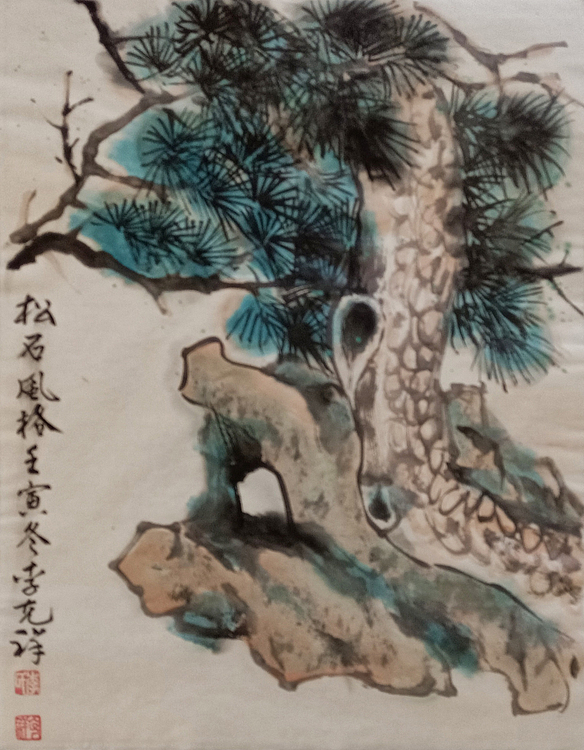 松石风格壬寅冬李克祥